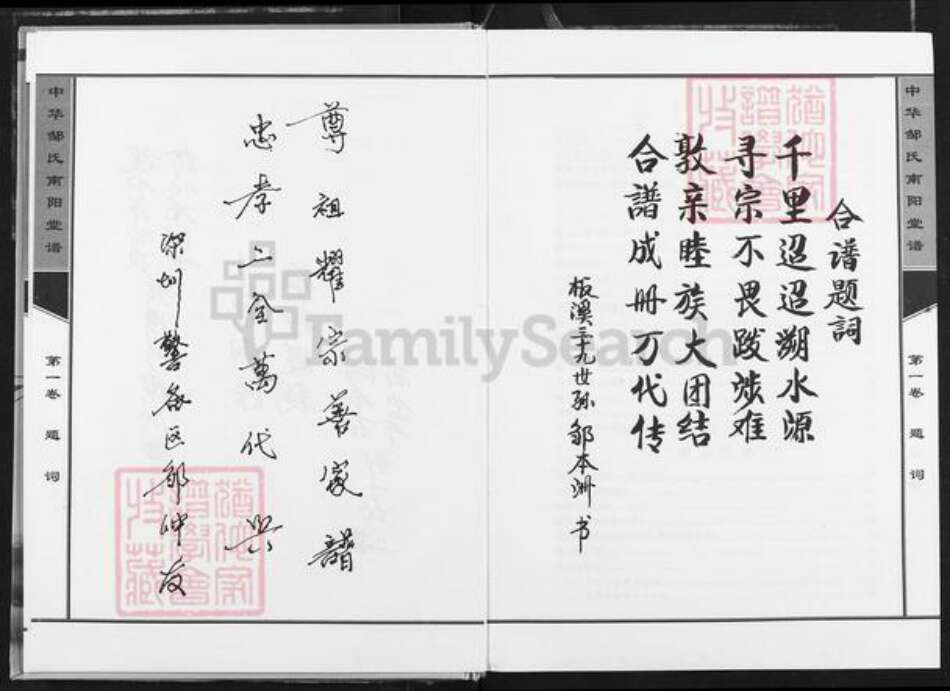 中华邹氏南阳堂谱
第一卷 题词
合谱题詞
千里迢迢溯水源
寻宗不畏跋涉难
敦亲睦族大团结
合譜成册万代传
板溪三十九世孙邹本洲书
尊祖耀宗善家譜
忠孝二全萬代兴
深圳
区邹仲友
中华邹氏南阳堂谱
第一卷 题词
FamilySearch